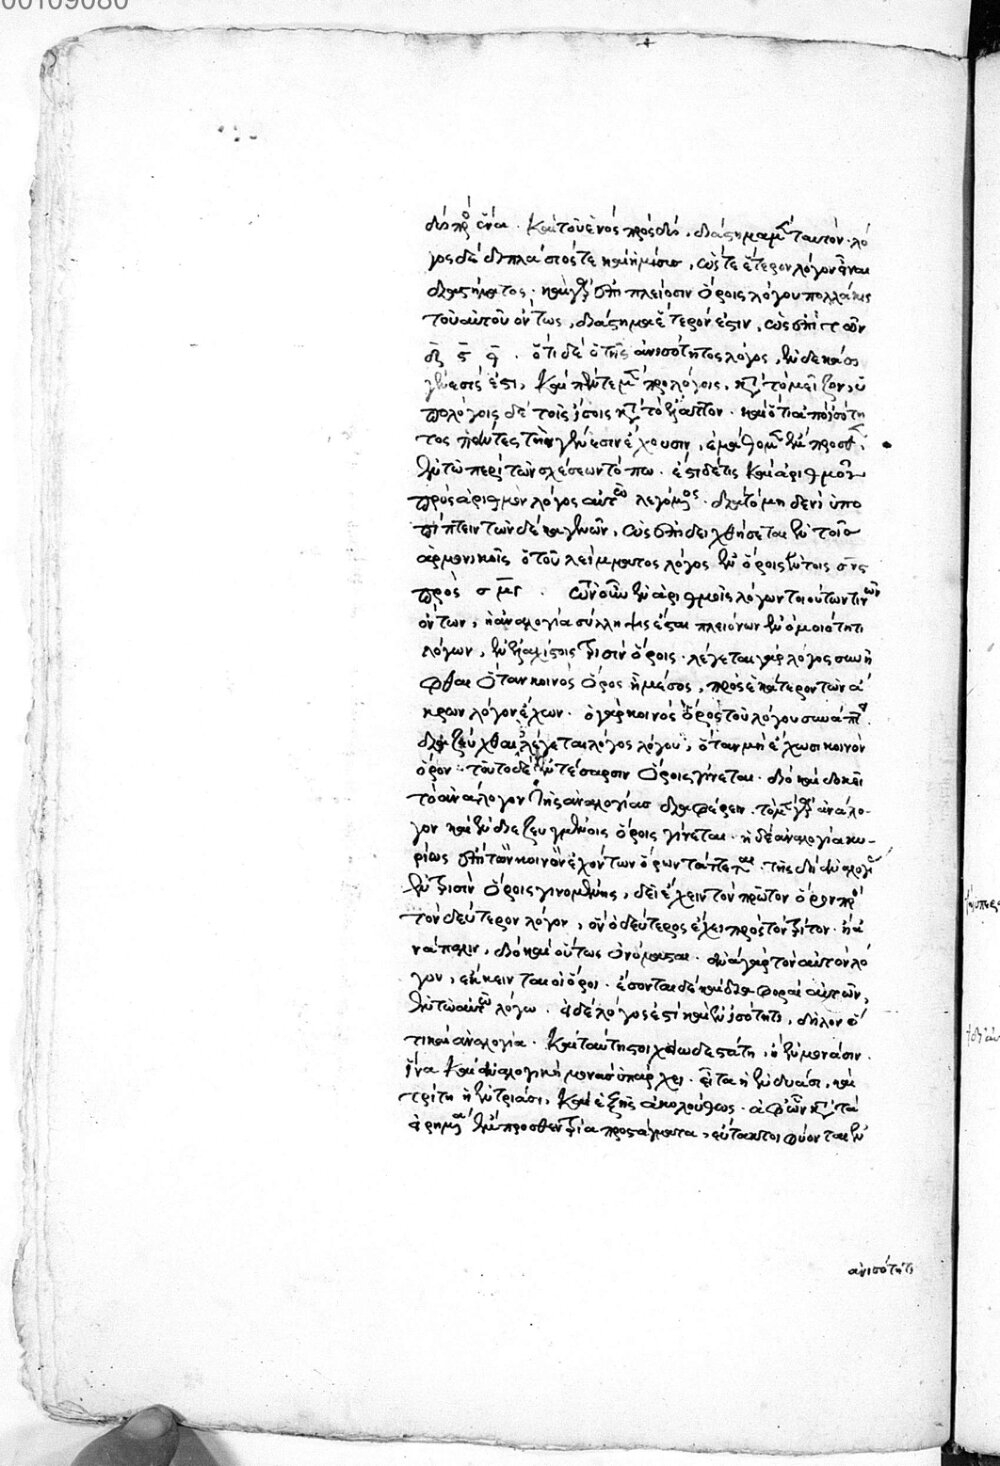 00109080
δύο πρὸς ἕνα. καὶ τοῦ ἑνὸς πρὸς δύο, διάστημα μὲν ταυτόν· λό
γος δὲ διπλάσιός τε καὶ ἥμισυς, ὥστε ἕτερον λόγον εἶναι
διαστήματος. καὶ γὰρ ἐπὶ πλείοσιν ὅροις λόγου πολλάκις
τοῦ αὐτοῦ ὄντως, διάστημα ἕτερόν ἐστιν, ὡς ἐπὶ τοῦ
ὅτι δὲ ὁ τῆς ἀνισότητος λόγος, ἐν δέκα σχέ
ἐστι, καὶ πέντε μὲν προλόγοις, κατὰ τὸ μεῖζον, ὑ
πολόγοις δὲ τοῖς ἴσοις κατὰ τὸ ἔλαττον. καὶ ὅτι ἀπὸ ἰσότη
τος πάντες τὴν γένεσιν ἔχουσιν, ἐμάθομεν ἐν προσθ
ἐν τῷ περὶ τῶν σχέσεων τόπῳ. ἔστι δέ τις καὶ ἀριθμοῦ
πρὸς ἀριθμὸν λόγος αὐτῷ λεγόμενος. διὰ τὸ μηδενὶ ὑπο
πίπτειν τῶν δέκα γενῶν, ὡς ἐπιδειχθήσεται ἐν τοῖς
ἁρμονικοῖς ὁ τοῦ λείμματος λόγος ἐν ὅροις ἐν τοῖς σνς
πρὸς σμγ. ὧν οὖν ἐν ἀριθμοῖς λόγων τοιούτων τινῶν
ὄντων, ἡ ἀναλογία σύλληψις ἔσται πλειόνων ἐν ὁμοιότητι
λόγων, ἐν ἐλαχίστοις τρισὶν ὅροις. λέγεται γὰρ λόγος συνῆ
φθαι ὅταν κοινὸς ὅρος ᾖ μέσος, πρὸς ἑκάτερον τῶν ἄ
κρων λόγον ἔχων. ὁ γὰρ κοινὸς ὅρος τοῦ λόγου συνάπτει.
διεζεῦχθαι λέγεται λόγος λόγου, ὅταν μὴ ἔχωσι κοινὸν
ὅρον. τοῦτο δὲ ἐν τέσσαρσιν ὅροις γίνεται. διὸ καὶ δοκεῖ
τὸ ἀνάλογον τῆς ἀναλογίας διαφέρειν. τὸ μὲν γὰρ ἀνάλο-
γον καὶ ἐν διεζευγμένοις ὅροις γίνεται. ἡ δὲ ἀναλογία κυ-
ρίως ἐπὶ τῶν κοινὸν ἐχόντων ὅρων τάττεται. τῆς δὴ ἀναλογίας
ἐν τρισὶν ὅροις γινομένης, δεῖ ἔχειν τὸν πρῶτον ὅρον πρὸς
τὸν δεύτερον λόγον, ὃν ὁ δεύτερος ἔχει πρὸς τὸν τρίτον. ἢ ἀ
νάπαλιν, διὸ καὶ οὕτως ὠνόμασται. ἀνὰ γὰρ τὸν αὐτὸν λό
γον, κεῖνται οἱ ὅροι. ἔσονται δὲ καὶ διαφοραὶ αὐτῶν,
ἐν τῷ αὐτῷ λόγῳ. εἰ δὲ λόγος ἐστὶ καὶ ἐν ἰσότητι, δῆλον ὅ
τι καὶ ἀναλογία. καὶ ταύτῃ στοιχειωδεστάτη, ἡ ἐν μονάσιν.
ἵνα καὶ ἀναλογικὴ μονὰς ὑπάρχει. εἶτα ἡ ἐν δυάσι, καὶ
τρίτη ἡ ἐν τριάσι, καὶ ἑξῆς ἀκολούθως. ἀφ' ὧν κατὰ τὰ
εἰρημένα ἔμπροσθεν τρία προστάγματα, εὔτακτοι φύονται ἐν
ἀνισότητι